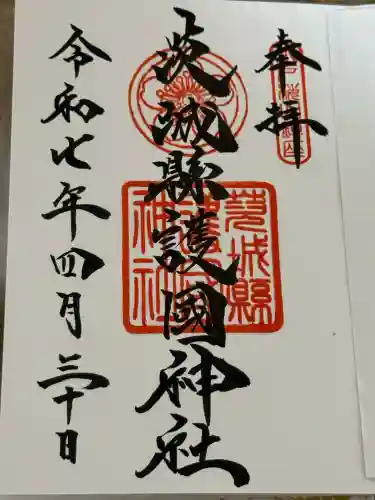 奉拝
茨城縣護國神社
令和七年四月三十日
茨城縣護國神社